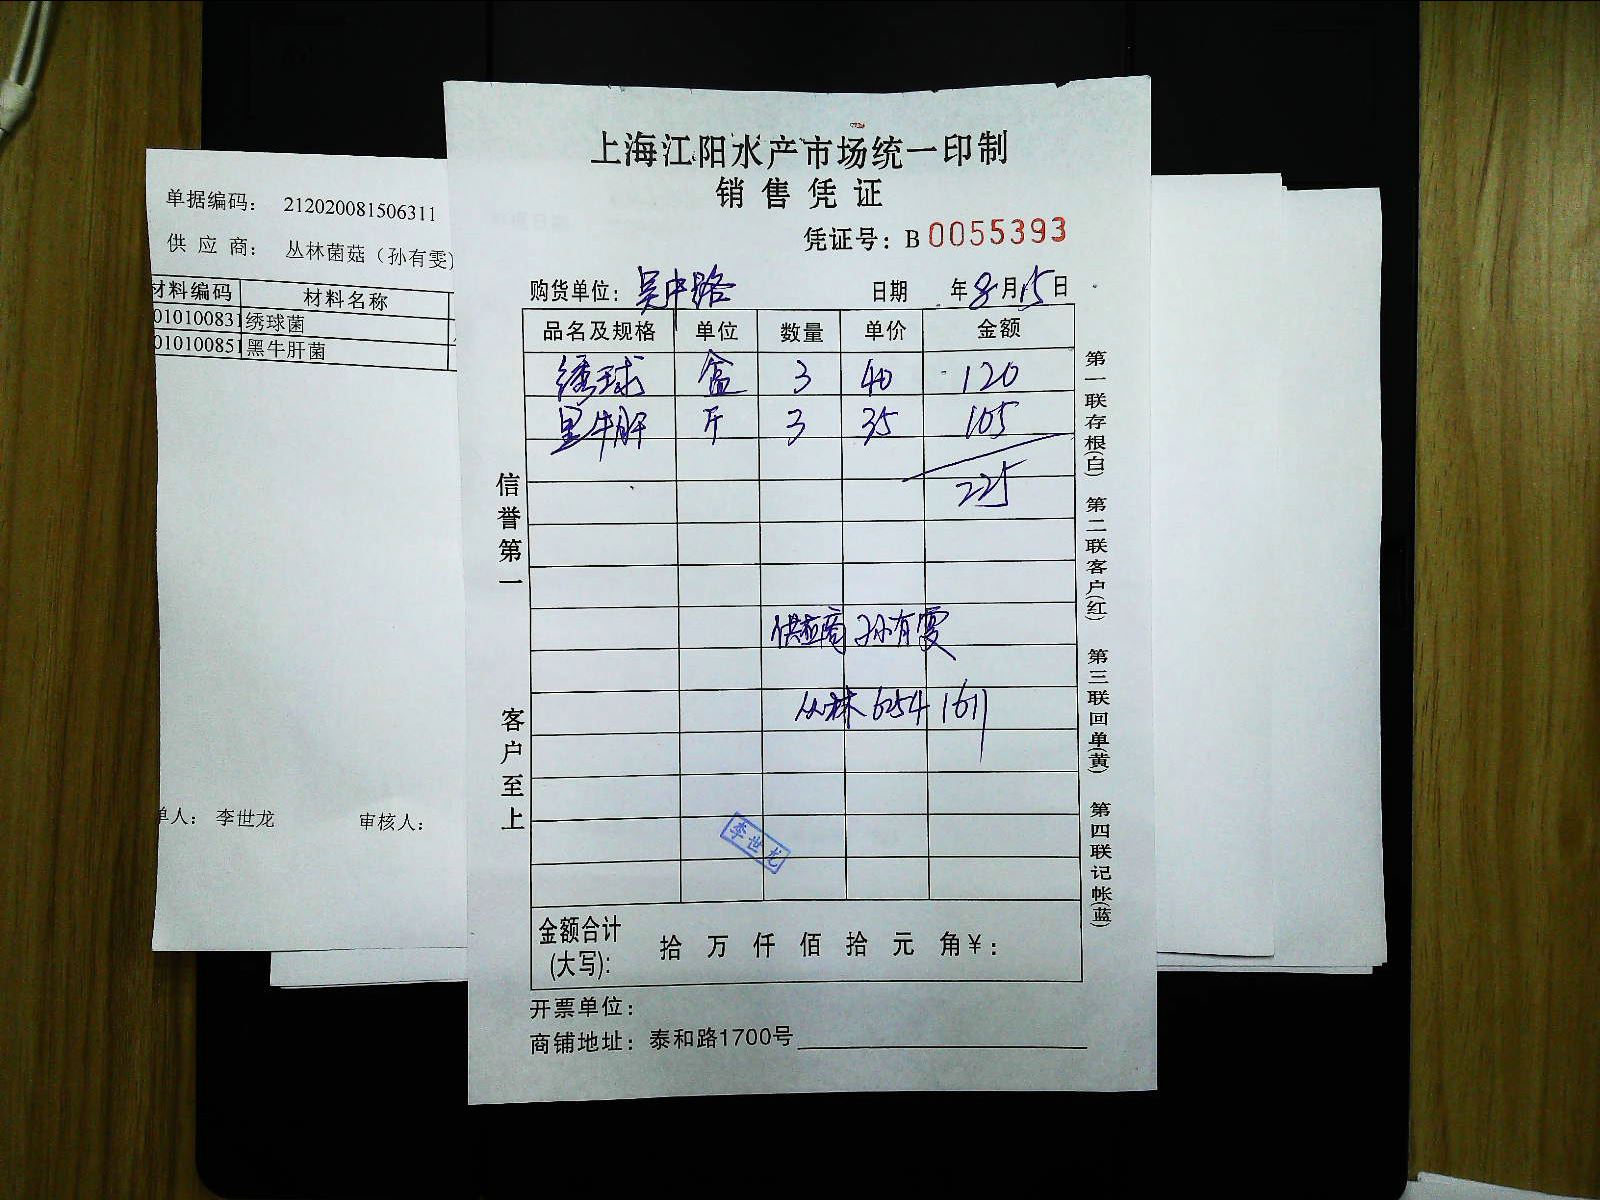 上海江阳水产市场统一印制
销售凭证
凭证号：B 0055393
购货单位：吴中路 日期 年8月15日
品名及规格 单位 数量 单价 金额
绣球 盒 3 40 120
黑牛肝 斤 3 35 105
225
供应商 孙有雯
丛林 6254 1611
李世龙
金额合计(大写)： 拾 万 仟 佰 拾 元 角 ¥：
开票单位：
商铺地址：泰和路1700号
信誉第一
客户至上
第一联存根(白) 第二联客户(红) 第三联回单(黄) 第四联记帐(蓝)
单据编码： 212020081506311
供应商： 丛林菌菇（孙有雯)
材料编码 材料名称
010100831 绣球菌
010100851 黑牛肝菌
单人： 李世龙 审核人：